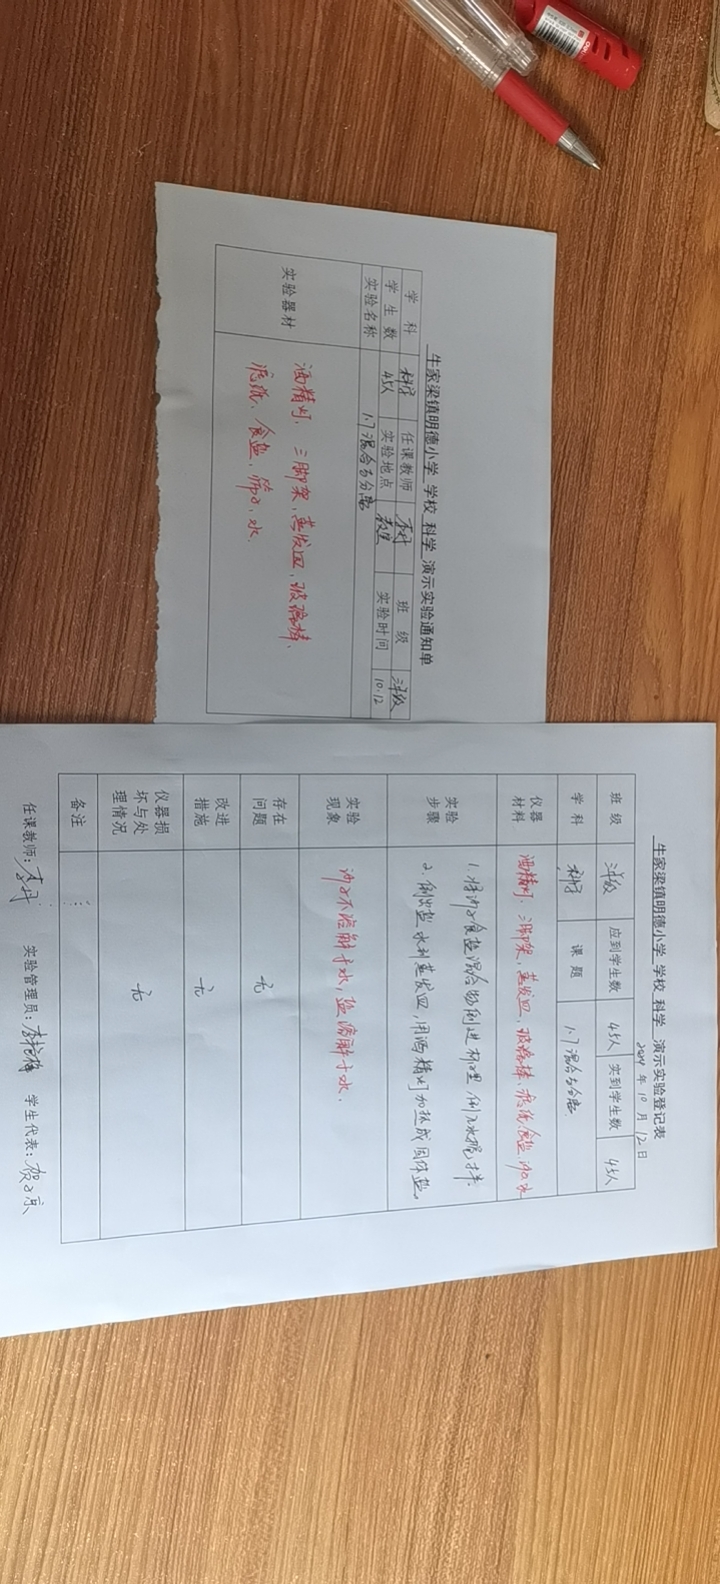 牛家梁镇明德小学 学校 科学 演示实验通知单
学科 科学 任课教师 李丹 班级 三年级
学生数 45人 实验地点 教室 实验时间 10.12
实验名称 1.7混合与分离
实验器材 酒精灯、三脚架、蒸发皿、玻璃棒、
滤纸、食盐、沙子、水、
牛家梁镇明德小学 学校 科学 演示实验登记表
年 10 月 12 日
班级 三年级 应到学生数 45人 实到学生数 45人
学科 科学 课题 1.7混合与分离
仪器材料 酒精灯、三脚架、蒸发皿、玻璃棒、滤纸、食盐、沙子、水
实验步骤 1.将沙子食盐混合物倒进杯里,倒入水搅拌
2.倒出盐水到蒸发皿,用酒精灯加热成固体盐。
实验现象 沙子不溶解于水,盐溶解于水.
存在问题 无
改进措施 无
仪器损坏与处理情况 无
备注
任课教师:李丹 实验管理员:李 学生代表:贺子